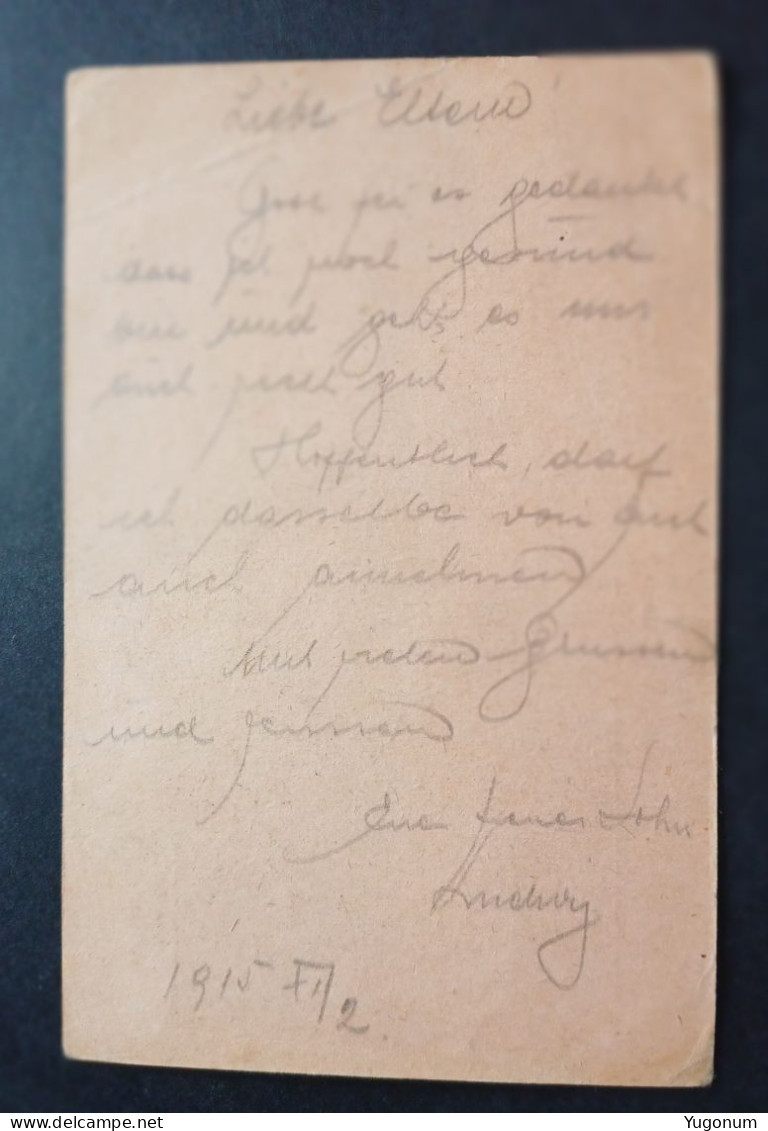 Liebe Eltern!
Gott sei es gedankt
dass ich noch gesund
bin und geht es uns
auch recht gut
Hoffentlich, darf
ich dasselbe von Euch
auch annehmen
Mit vielen Grüssen
und Küssen
Euer Sohn
Ludwig
1915 XII/2
Yugonum